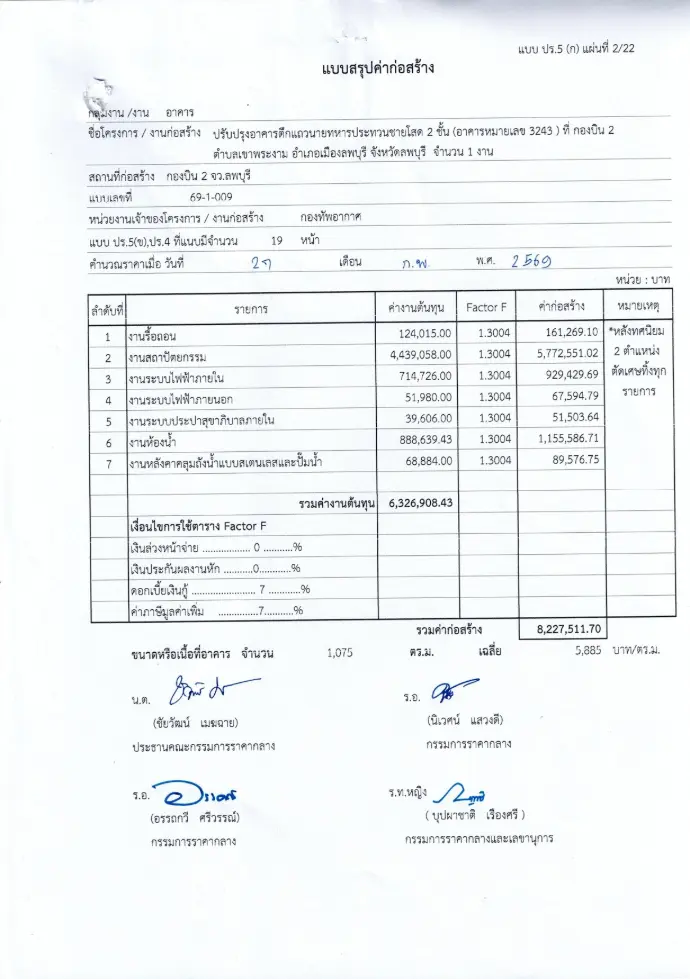 แบบ ปร.5 (ก) แผ่นที่ 2/22
แบบสรุปค่าก่อสร้าง
กลุ่มงาน /งาน อาคาร
ชื่อโครงการ / งานก่อสร้าง ปรับปรุงอาคารตึกแถวนายทหารประทวนชายโสด 2 ชั้น (อาคารหมายเลข 3243 ) ที่ กองบิน 2
ตำบลเขาพระงาม อำเภอเมืองลพบุรี จังหวัดลพบุรี จำนวน 1 งาน
สถานที่ก่อสร้าง กองบิน 2 จว.ลพบุรี
แบบเลขที่ 69-1-009
หน่วยงานเจ้าของโครงการ / งานก่อสร้าง กองทัพอากาศ
แบบ ปร.5(ข),ปร.4 ที่แนบมีจำนวน 19 หน้า
คำนวณราคาเมื่อ วันที่ ๒๗ เดือน ก.พ. พ.ศ. 2569
หน่วย : บาท
ลำดับที่ รายการ ค่างานต้นทุน Factor F ค่าก่อสร้าง หมายเหตุ
1 งานรื้อถอน 124,015.00 1.3004 161,269.10 *หลังทศนิยม
2 งานสถาปัตยกรรม 4,439,058.00 1.3004 5,772,551.02 2 ตำแหน่ง
3 งานระบบไฟฟ้าภายใน 714,726.00 1.3004 929,429.69 ตัดเศษทิ้งทุก
4 งานระบบไฟฟ้าภายนอก 51,980.00 1.3004 67,594.79 รายการ
5 งานระบบประปาสุขาภิบาลภายใน 39,606.00 1.3004 51,503.64
6 งานห้องน้ำ 888,639.43 1.3004 1,155,586.71
7 งานหลังคาคลุมถังน้ำแบบสเตนเลสและปั๊มน้ำ 68,884.00 1.3004 89,576.75
รวมค่างานต้นทุน 6,326,908.43
เงื่อนไขการใช้ตาราง Factor F
เงินล่วงหน้าจ่าย .................. 0 ...........%
เงินประกันผลงานหัก ...........0............%
ดอกเบี้ยเงินกู้ ........................ 7 ............%
ค่าภาษีมูลค่าเพิ่ม ...............7...........%
รวมค่าก่อสร้าง 8,227,511.70
ขนาดหรือเนื้อที่อาคาร จำนวน 1,075 ตร.ม. เฉลี่ย 5,885 บาท/ตร.ม.
น.ต. ร.อ.
(ชัยวัฒน์ เมฆฉาย) (นิเวศน์ แสวงดี)
ประธานคณะกรรมการราคากลาง กรรมการราคากลาง
ร.อ. ร.ท.หญิง
(อรรถกวี ศรีวรรณ์) ( บุปผาชาติ เรืองศรี )
กรรมการราคากลาง กรรมการราคากลางและเลขานุการ